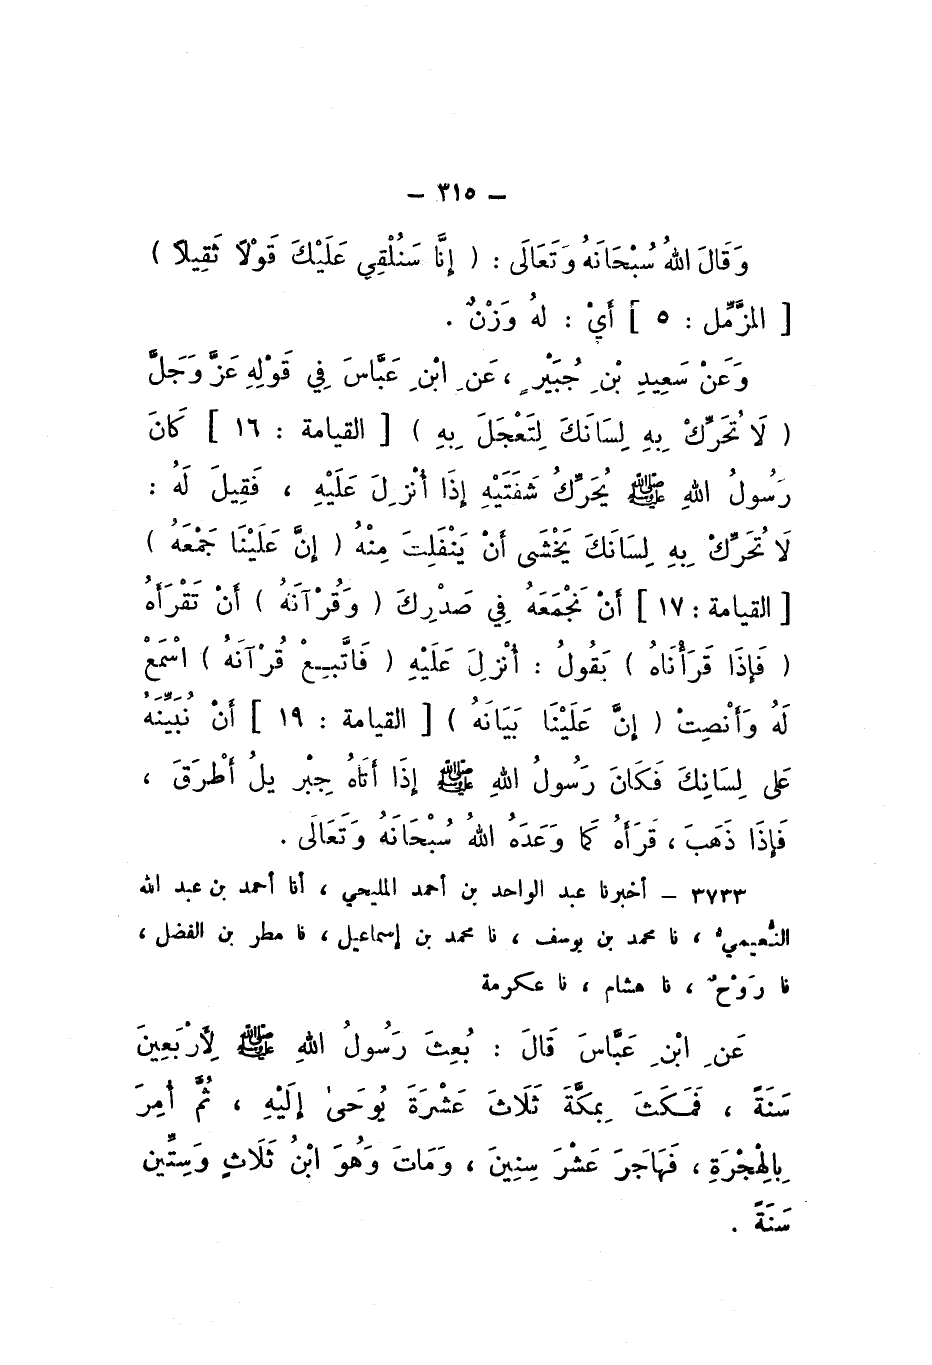 ـ ٣١٥ ـ
وَقَالَ اللهُ سُبْحَانَهُ وَتَعَالَى : ( إِنَّا سَنُلْقِي عَلَيْكَ قَوْلاً ثَقِيلاً )
[ المزَّمِّل : ٥ ] أَيْ : لهُ وَزْنٌ .
وَعَنْ سَعِيدِ بْنِ جُبَيْرٍ ، عَنِ ابْنِ عَبَّاسَ فِي قَوْلِهِ عَزَّ وَجَلَّ
( لَا تُحَرِّكْ بِهِ لِسَانَكَ لِتَعْجَلَ بِهِ ) [ القيامة : ١٦ ] كَانَ
رَسُولُ اللهِ ﷺ يُحَرِّكُ شَفَتَيْهِ إِذَا أُنْزِلَ عَلَيْهِ ، فَقِيلَ لَهُ :
لَا تُحَرِّكْ بِهِ لِسَانَكَ يَخْشَى أَنْ يَنْفَلِتَ مِنْهُ ( إِنَّ عَلَيْنَا جَمْعَهُ )
[ القيامة : ١٧ ] أَنْ نَجْمَعَهُ فِي صَدْرِكَ ( وَقُرْآنَهُ ) أَنْ تَقْرَأَهُ
( فَإِذَا قَرَأْنَاهُ ) يَقُولُ : أُنْزِلَ عَلَيْهِ ( فَاتَّبِعْ قُرْآنَهُ ) اسْمَعْ
لَهُ وَأَنْصِتْ ( إِنَّ عَلَيْنَا بَيَانَهُ ) [ القيامة : ١٩ ] أَنْ نُبَيِّنَهُ
عَلى لِسَانِكَ فَكَانَ رَسُولُ اللهِ ﷺ إِذَا أَتَاهُ جِبْرِيلُ أَطْرَقَ ،
فَإِذَا ذَهَبَ ، قَرَأَهُ كَمَا وَعَدَهُ اللهُ سُبْحَانَهُ وَتَعَالَى .
٣٧٣٣ ـ أخبرنا عبد الواحد بن أحمد المليحي ، أنا أحمد بن عبد الله
النُّعيميُّ ، نا محمد بن يوسف ، نا محمد بن إسماعيل ، نا مطر بن الفضل ،
نا رَوْحٌ ، نا هشام ، نا عكرمة
عَنِ ابْنِ عَبَّاسَ قَالَ : بُعِثَ رَسُولُ اللهِ ﷺ لِأَرْبَعِينَ
سَنَةً ، فَمَكَثَ بِمَكَّةَ ثَلَاثَ عَشْرَةَ يُوحَىٰ إِلَيْهِ ، ثُمَّ أُمِرَ
بِالْهِجْرَةِ ، فَهَاجَرَ عَشْرَ سِنِينَ ، وَمَاتَ وَهُوَ ابْنُ ثَلَاثٍ وَسِتِّين
سَنَةً .